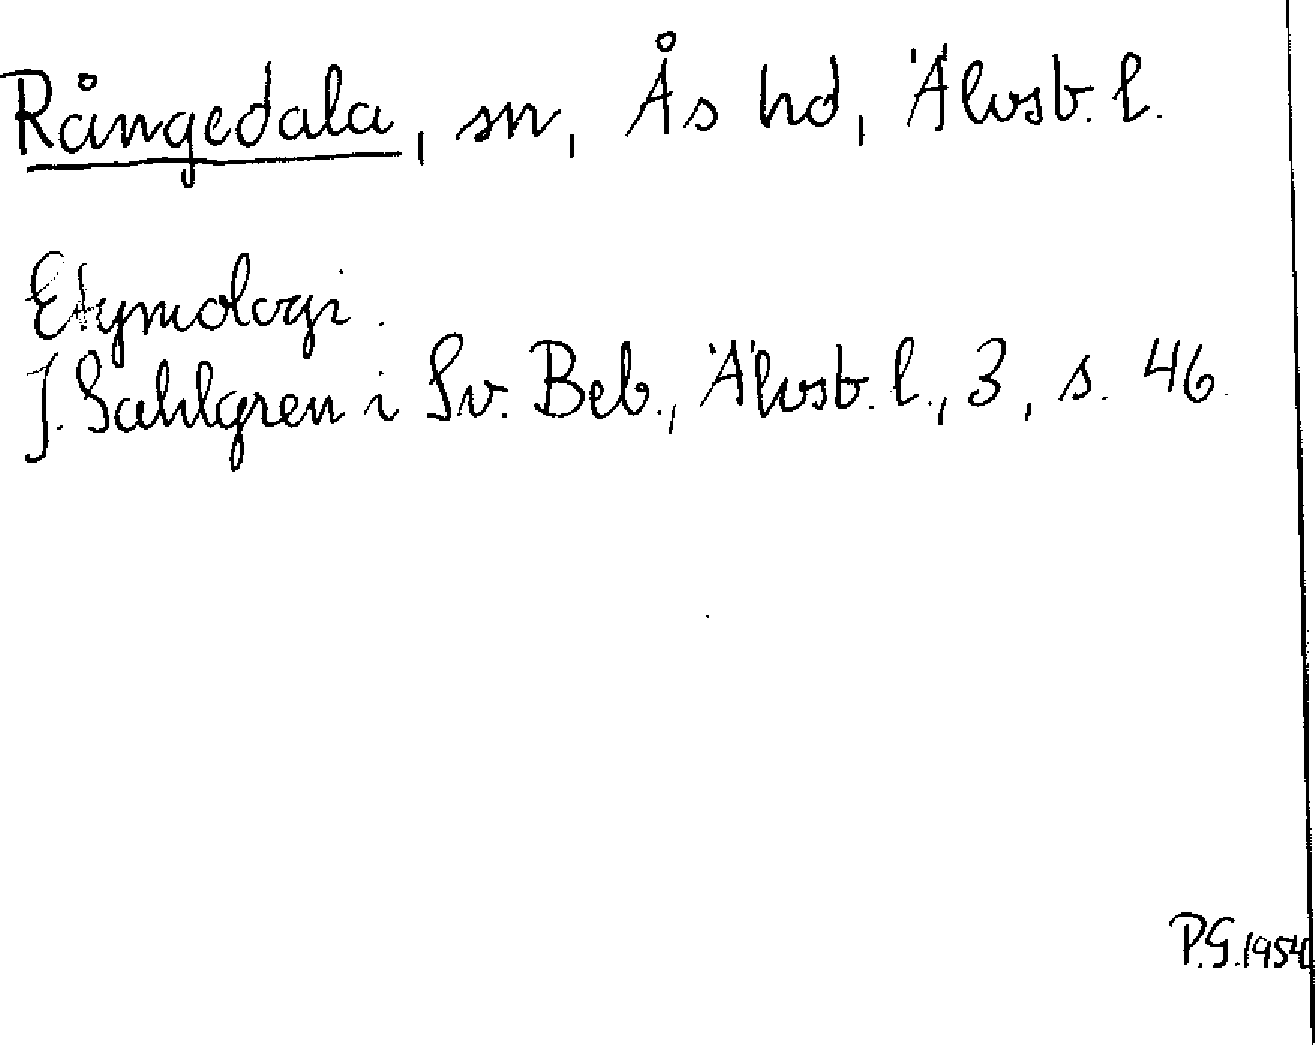 Rångedala, sn, Ås hd, Älvsb. l.
Etymologi.
J. Sahlgren i Sv. Beb., Älvsb. l., 3, s. 46.
P.G. 1954